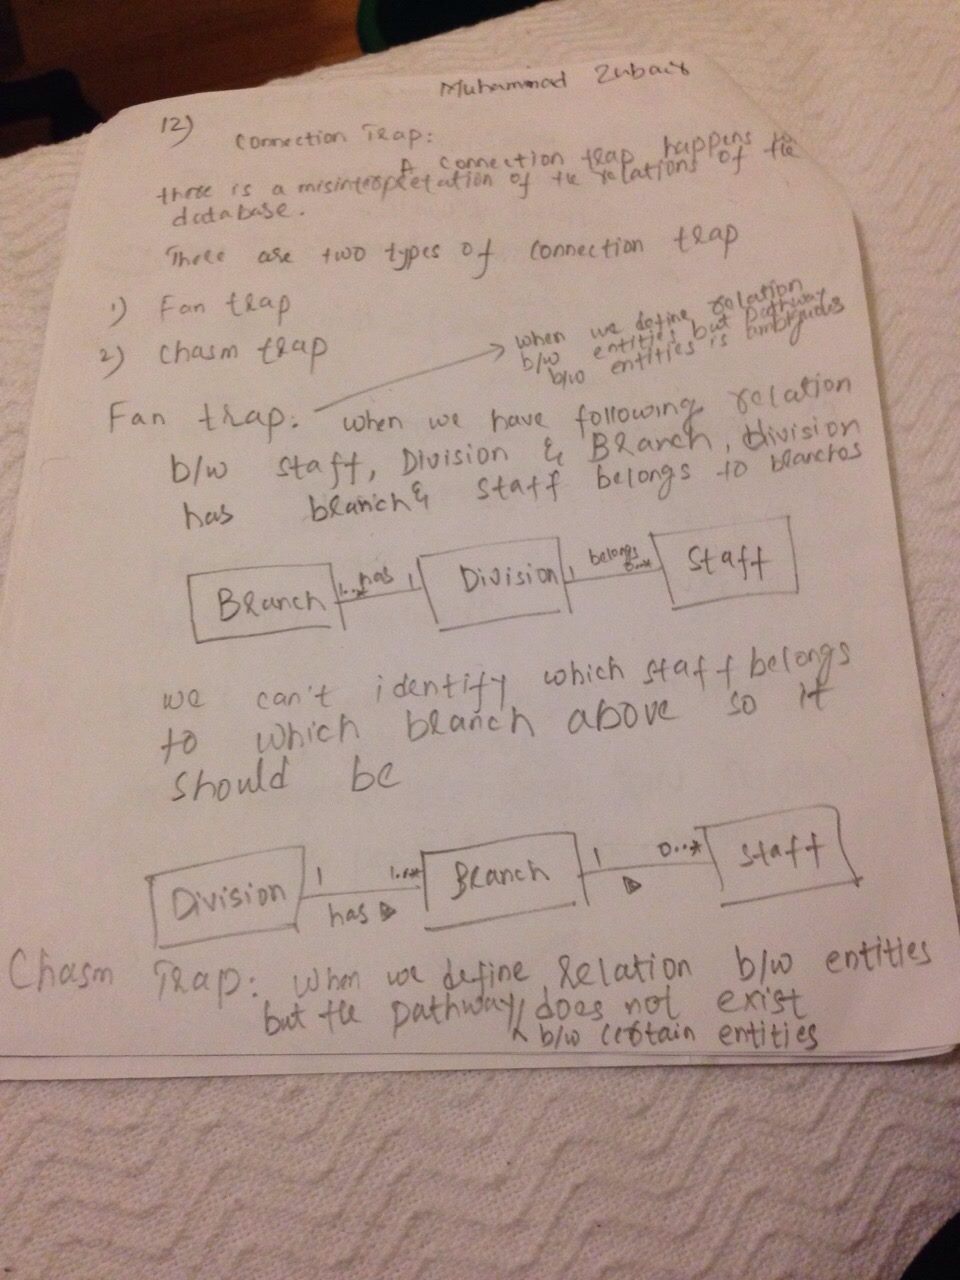 Muhammad Zubair
12)
Connection Trap:
A connection trap happens
there is a misinterpretation of the relations of the
database.
There are two types of connection trap
1) Fan trap
2) Chasm trap
when we define relation
b/w entities but pathway
b/w entities is ambiguous
Fan trap: when we have following relation
b/w staff, Division & Branch, division
has branch & staff belongs to branches
Branch 1..* has 1 Division 1 belongs 0..* Staff
we can't identify which staff belongs
to which branch above so it
should be
Division 1 has 1..* Branch 1 0..* Staff
Chasm Trap: when we define Relation b/w entities
but the pathway does not exist
b/w certain entities